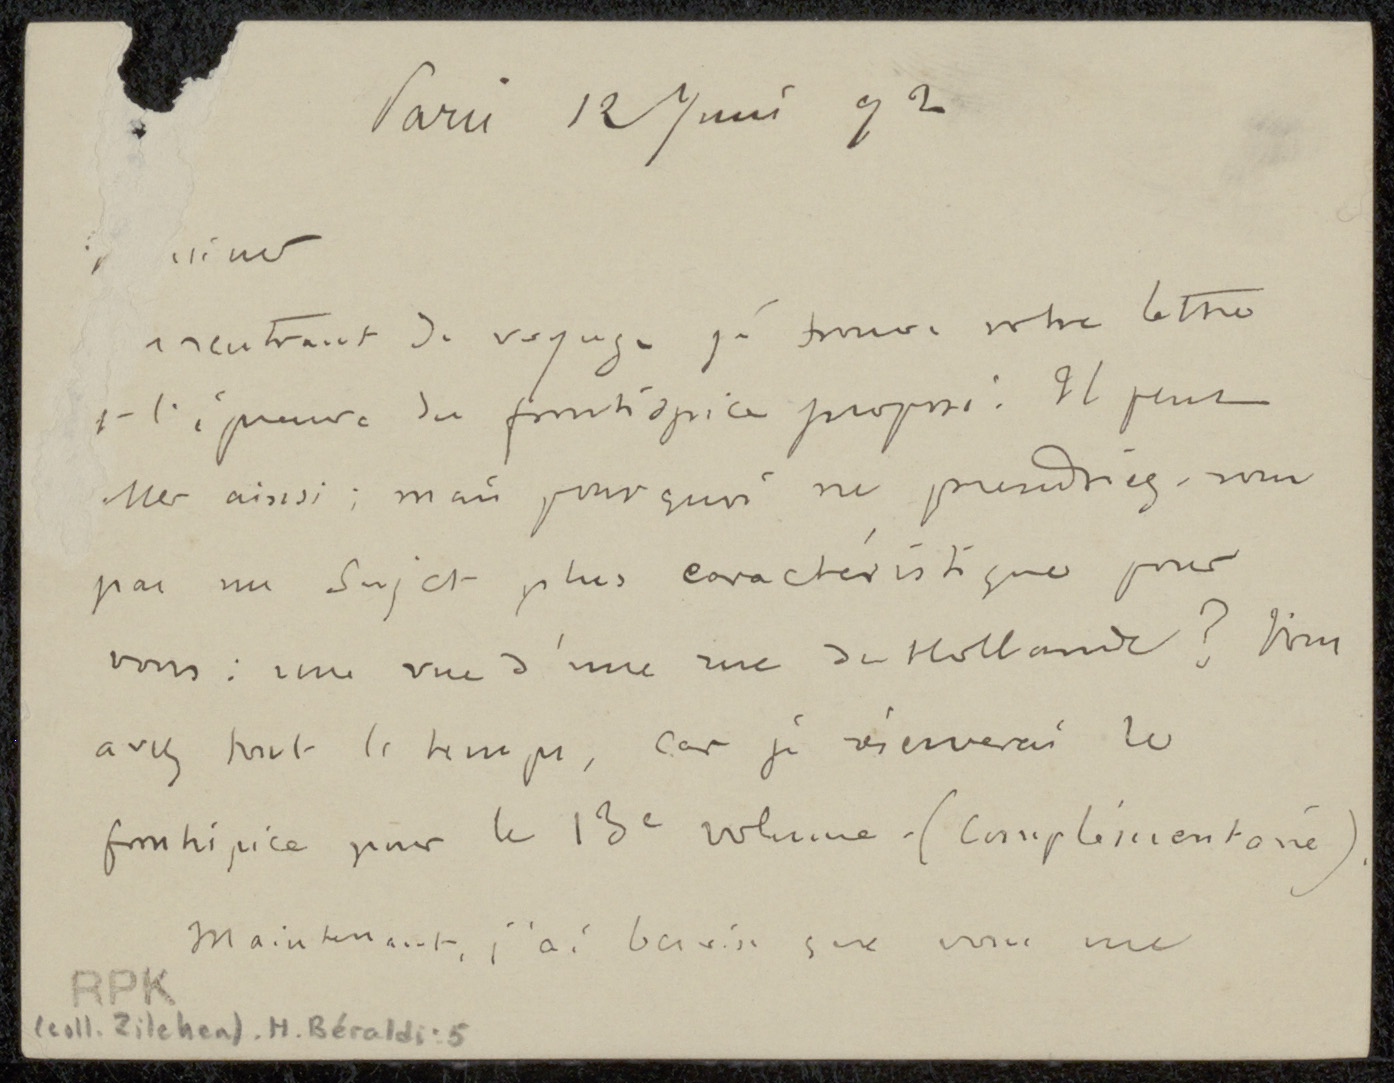 Paris 12 Juin 92
rentrant de voyage je trouve votre lettre
l'épreuve du frontispice proposé. Il peut
aller ainsi ; mais pourquoi ne prendriez-vous
pas un sujet plus caractéristique pour
vous : une vue d'une rue de Hollande ? Vous
avez tout le temps, car je réserverai le
frontispice pour le 13e volume (complémentaire).
Maintenant, j'ai besoin que vous me
RPK
(coll. Zilcken). H. Béraldi: 5